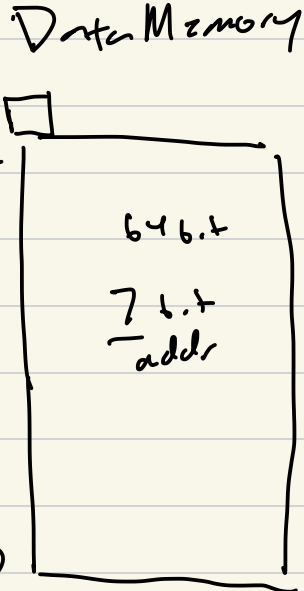 Data Memory
64 bit
7 bit
addr